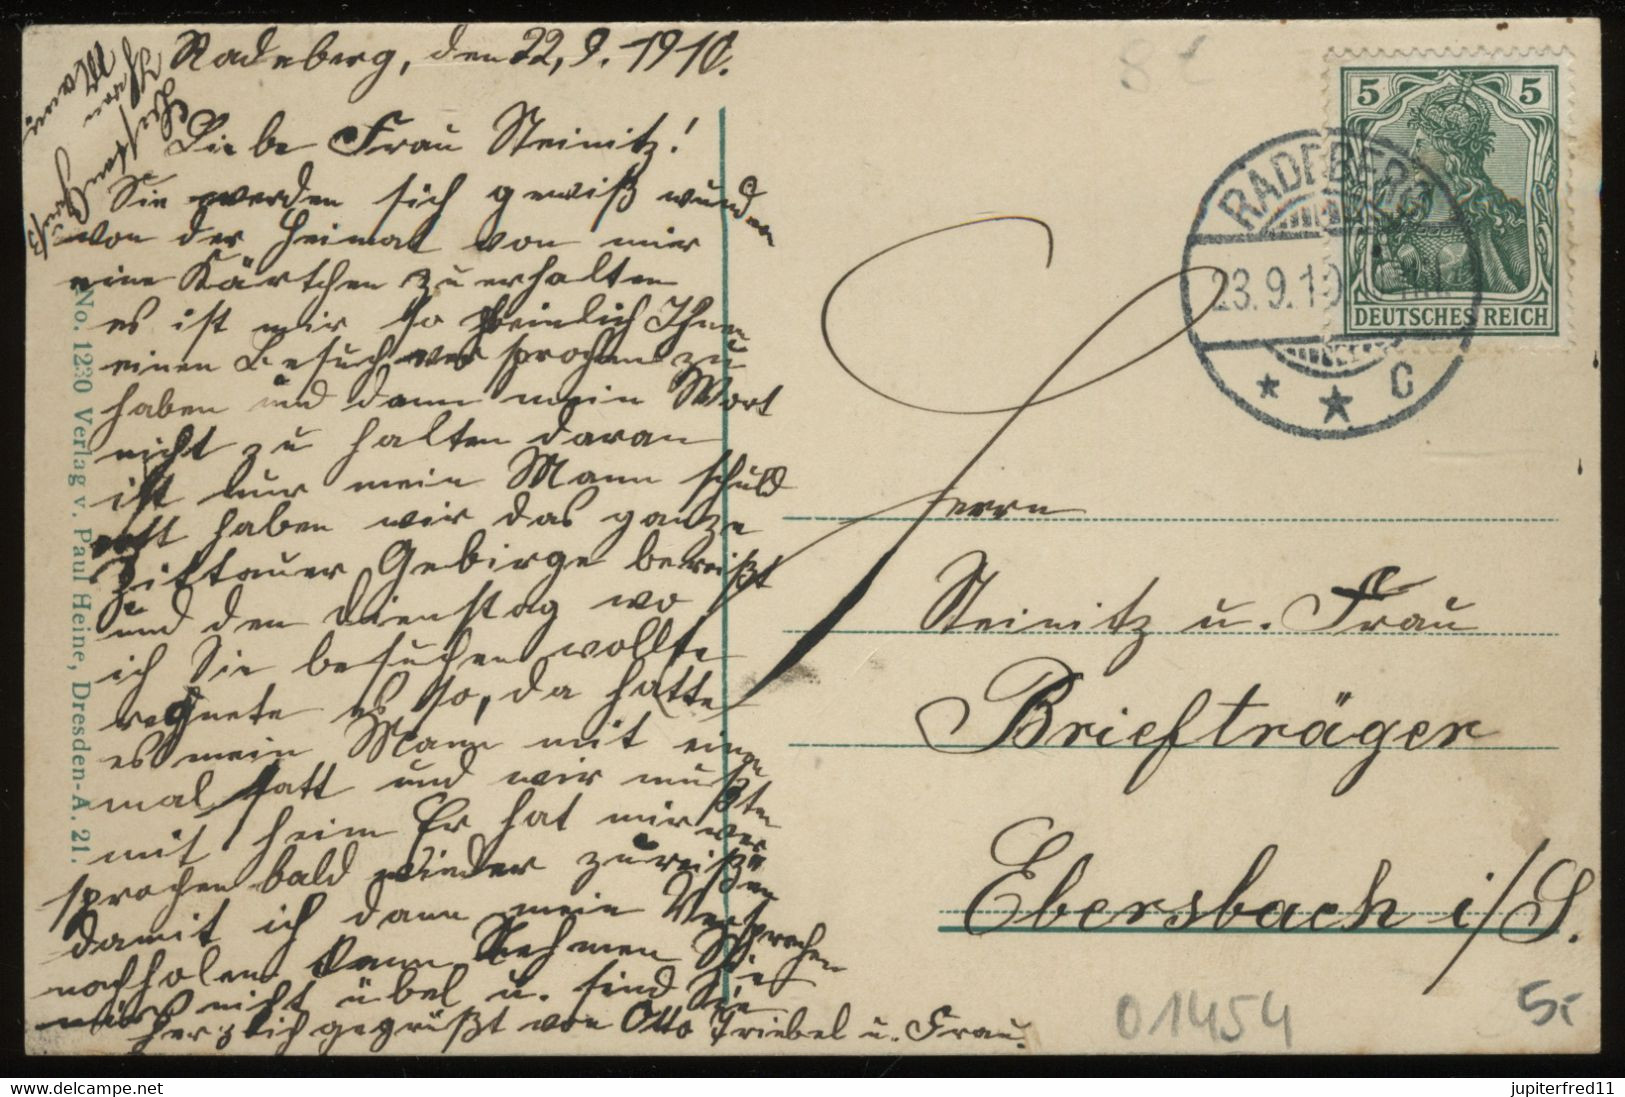 Radeberg, den 22.9.1910.
Liebe Frau Steinitz!
Sie werden sich gewiß wundern
von der Heimat von mir
eine Kärtchen zu erhalten
es ist mir so peinlich Ihnen
einen Besuch versprochen zu
haben und dann mein Wort
nicht zu halten daran
ist nur mein Mann schuld
erst haben wir das ganze
Zittauer Gebirge bereißt
und den Dienstag wo
ich Sie besuchen wollte
regnete es so, da hatte
es mein Mann mit einen
mal satt und wir mußten
mit heim Er hat mir ver
sprochen bald wieder zureißen
damit ich dann mein Versprechen
nachholen kann Nehmen Sie
mirs nicht übel u. sind Sie
herzlich gegrüßt von Otto Triebel u. Frau.
Besten Gruß
Ihren
Mann
No. 1230 Verlag v. Paul Heine, Dresden-A. 21.
5 5
DEUTSCHES REICH
RADEBERG
23.9.10
* * C
Herrn
Steinitz u. Frau
Briefträger
Ebersbach i/S.
01454
5,-
www.delcampe.net
jupiterfred11